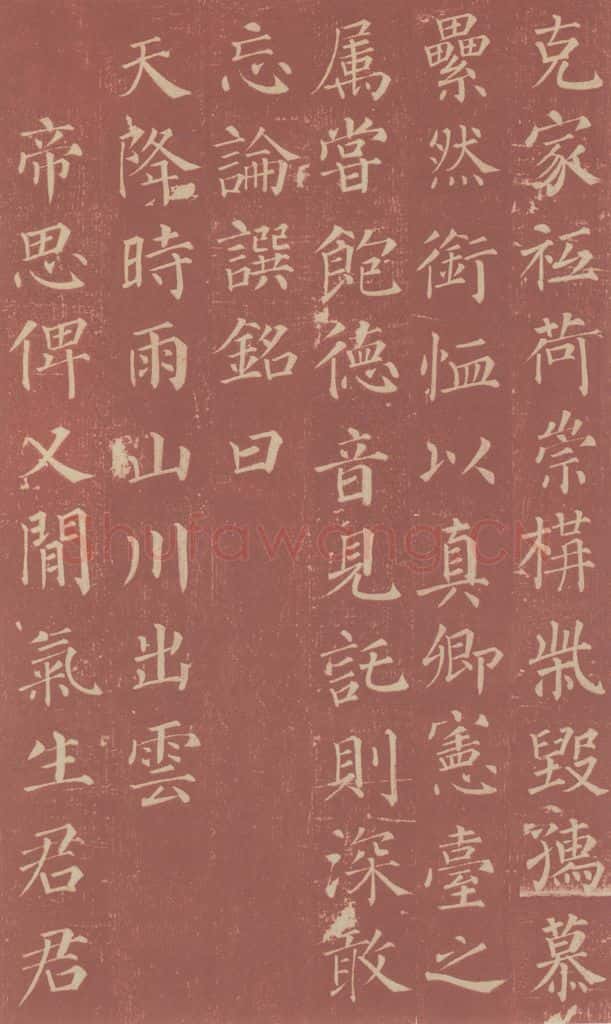 克家祗荷崇構柴毀孺慕
纍然銜恤以真卿憲臺之
属甞飽德音見託則深敢
忘論譔銘曰
天降時雨山川出雲
帝思俾乂閒氣生君君
shufawang.CN